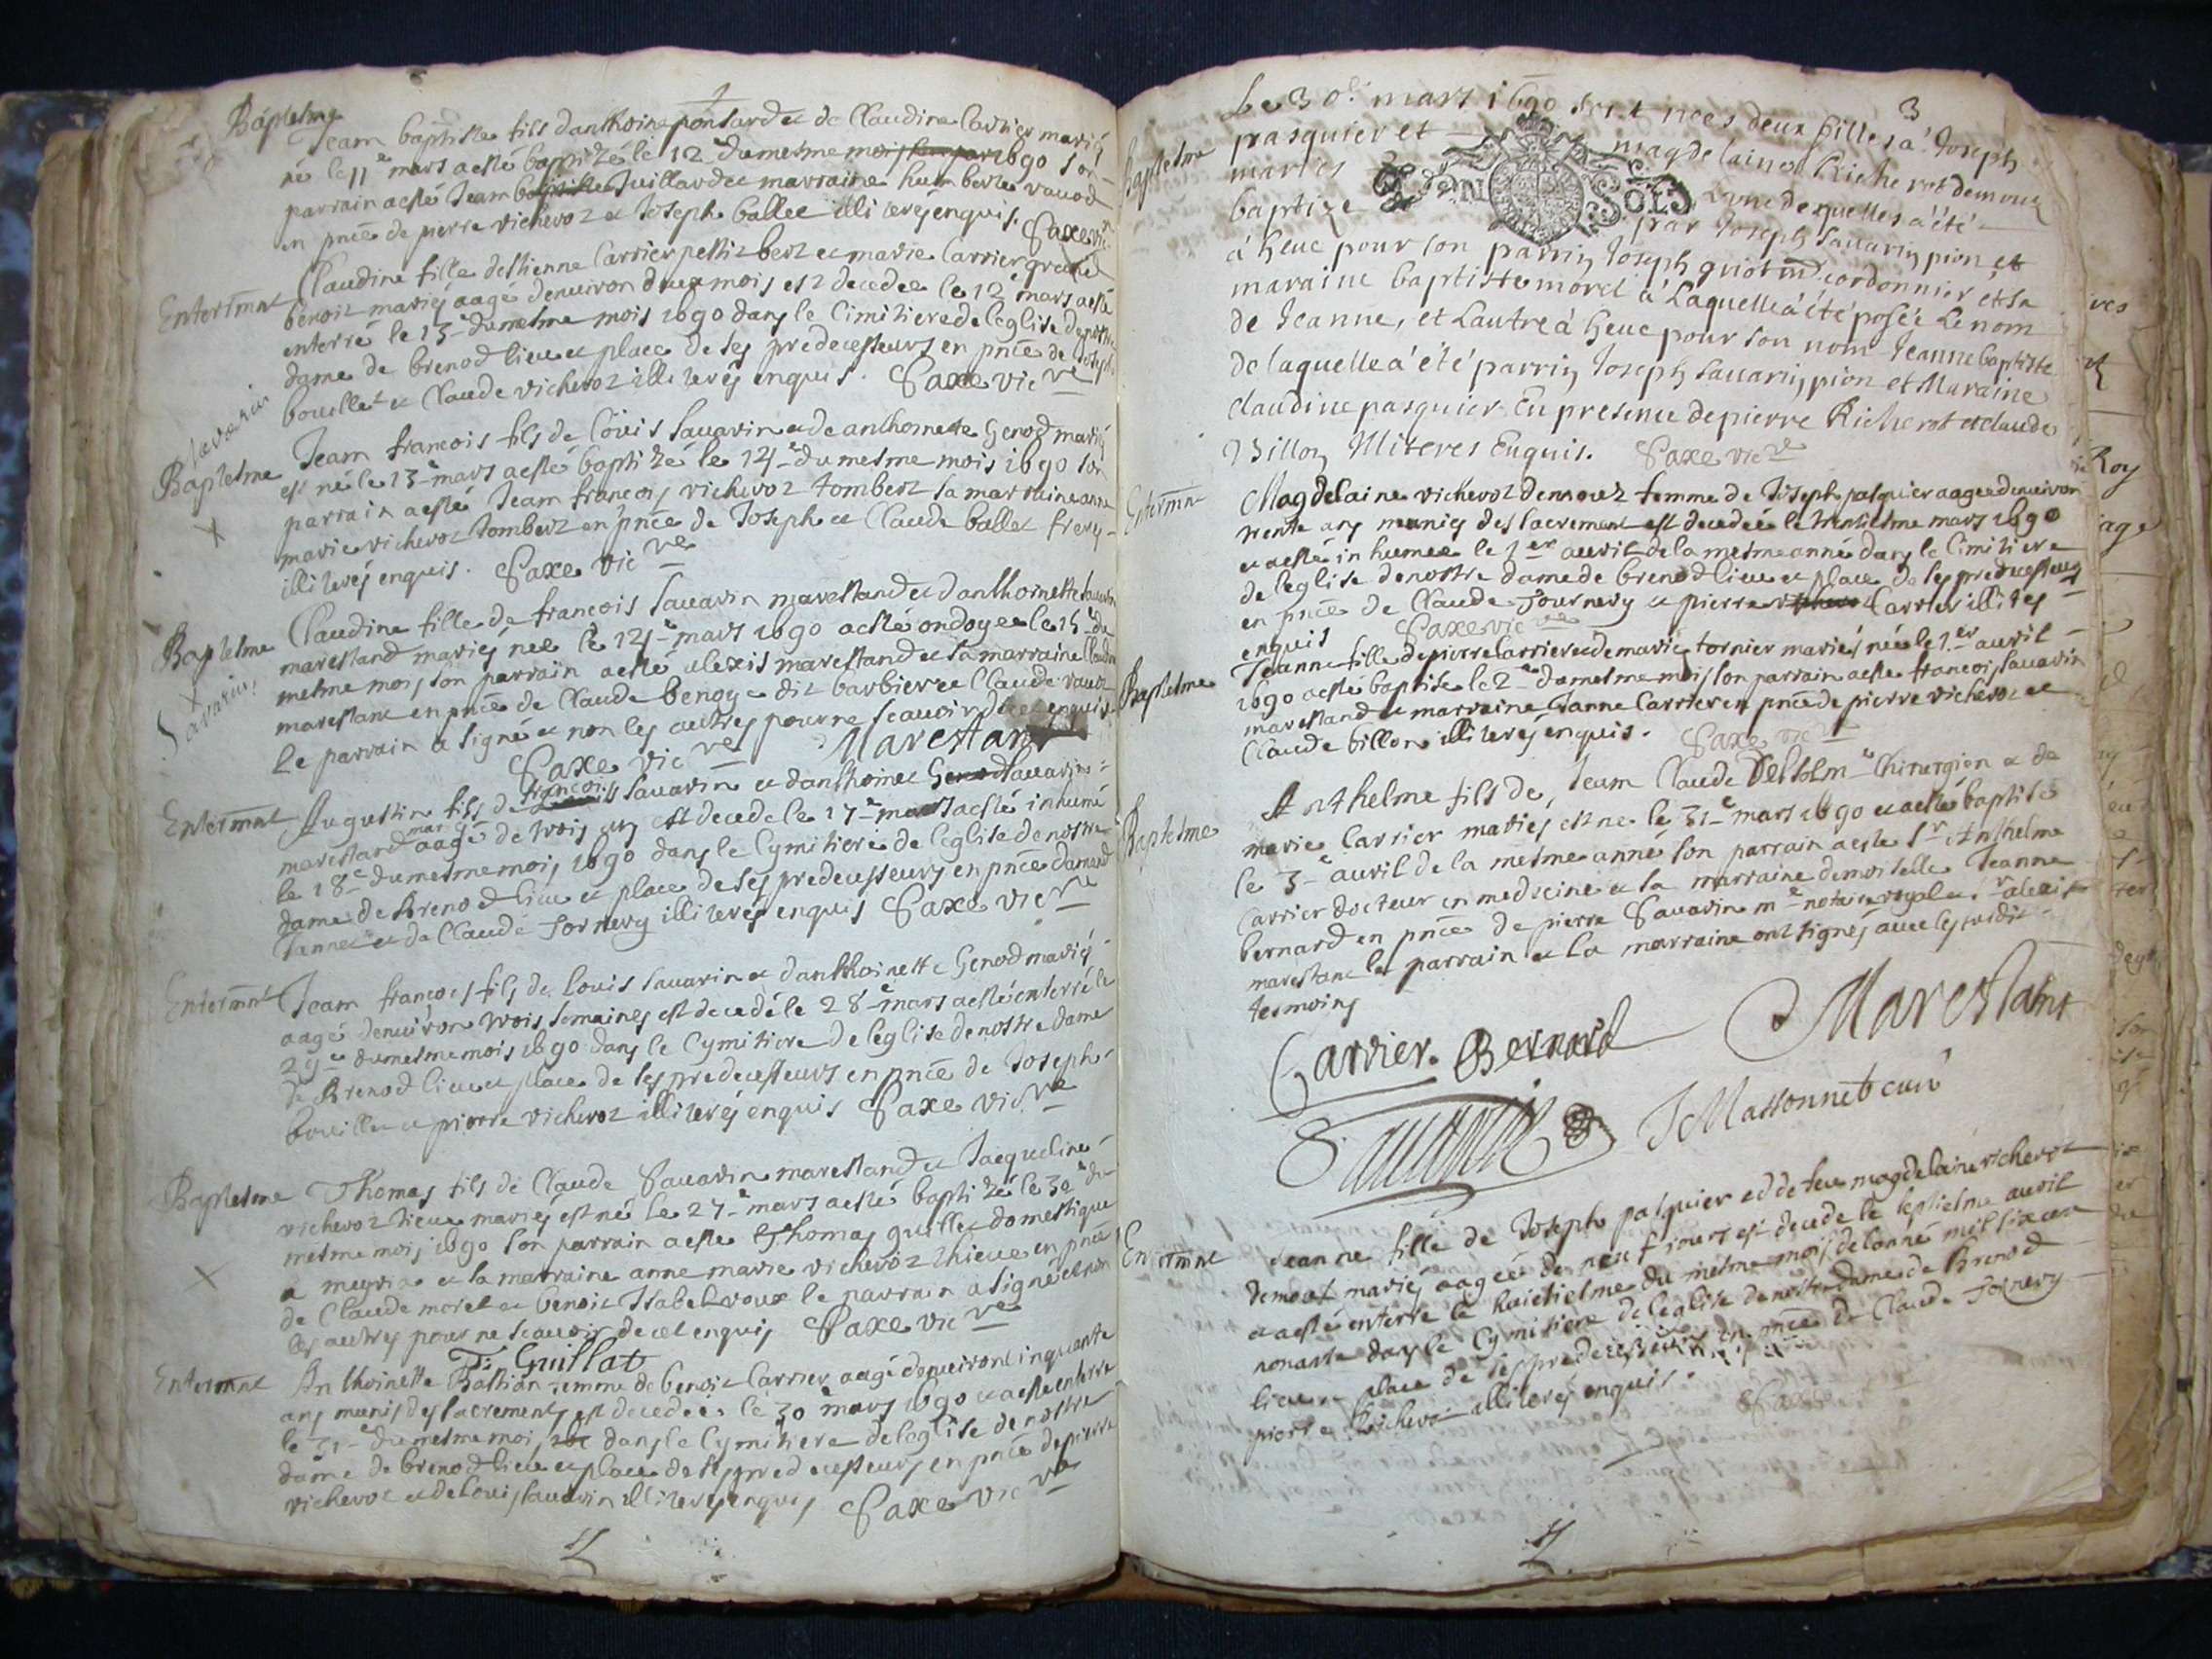 Baptesme
Jean baptiste fils danthoine ponsard et de Claudine Carrier mariés
né le 11e mars a esté baptizé le 12e du mesme mois 1690 son
parrain a esté Jean baptiste Juillard et marraine humberte ravod
en pnce de pierre richerot et Joseph ballet illiterés enquis. Saxe vic
Enterrmnt
Claudine fille destienne Carrier pettit bert et marie Carrier grand
benoit mariés aagé denuiron deux mois est decedee le 12e mars a esté
enterré le 13e du mesme mois 1690 dans le Cimitiere de leglise de nostre
dame de brenod lieu et place de ses predecesseurs en pnce de Joseph
bouillet et Claude richerot illiterés enquis. Saxe vic re
Savarin
Baptesme
Jean francois fils de Louis Sauarin et de anthomette Genod mariés
est né le 13e mars a esté baptizé le 14e du mesme mois 1690 son
parrain a esté Jean francois richerot tombert sa marraine anne
marie richerot tombert en pnce de Joseph et Claude ballet freres
illiterés enquis. Saxe vic re
Baptesme
Savarin
Claudine fille de francois Sauarin marestand et danthoinette Sauarin
marestand mariés née le 14e mars 1690 a esté ondoyee le 15e du
mesme mois son parrain a esté alexis marestand et sa marraine Claudine
marestant en pnce de Claude benoge dit barbier et Claude ravot
Le parrain a signé et non les autres pour ne scauoir de ce enquis
Saxe vic re Marestant
Enterrmnt
francois
Augustin fils de Sauarin et danthoinet Genod Sauarin
mariés
marestand aagé de trois ans est decede le 17e mars a esté inhumé
le 18e du mesme mois 1690 dans le Cymitiere de leglise de nostre
dame de Brenod lieu et place de ses predecesseurs en pnce damand
Jannet et de Claude fornery illiterés enquis Saxe vic re
Enterrmnt
Jean francois fils de Louis Sauarin et danthoinette Genod mariés
aagé denuiron trois semaines est decedé le 28e mars a esté enterré le
29e du mesme mois 1690 dans le Cymitiere de leglise de nostre dame
de Brenod lieu et place de ses predecesseurs en pnce de Joseph
bouillet et pierre richerot illiterés enquis Saxe vic re
Baptesme
Thomas fils de Claude Sauarin marestand et Jacqueline
richerot tieue mariés est né le 27e mars a esté baptizé le 30e du
mesme mois 1690 son parrain a esté Thomas guillet domestique
a meyria et la marraine anne marie richerot thieue en pnce
de Claude morel et benoit Isabel roux le parrain a signé et non
les autres pour ne scauoir de ce enquis Saxe vic re
T. Guillat
Enterrmnt
Anthoinette Bastian femme de benoit Carrier aagé denuiron cinquante
ans munis des sacrements est decedée le 30e mars 1690 et a esté enterré
le 31e du mesme mois dans le Cymitiere de leglise de nostre
dame de brenod lieu et place de ses predecesseurs en pnce de pierre
richerot et de Louis Sauarin illiterés enquis Saxe vic re
3
Baptesme
Le 30e mars 1690 sont nees deux filles à Joseph
pasquier et magdelaine Richerot demoux
mariés Lune desquelles à été
baptizé par Joseph Sauarin pion et
à heue pour son parrin Joseph guiot md cordonnier et sa
maraine baptiste morel à Laquelle à été posée Le nom
de Jeanne, et Lautre à heue pour son nom Jeanne baptiste
de laquelle à été parrin Joseph Sauarin pion et Maraine
claudine pasquier En presence de pierre Richerot et claude
Billon Illiteres Enquis. Saxe vic re
Enterrmnt
Magdelaine richerot demouz femme de Joseph pasquier aagee denuiron
trente ans munies des sacrement est decedée le trentiesme mars 1690
et a esté inhumee le 1er auril de la mesme année dans le Cimitiere
de leglise de nostre dame de brenod lieu et place de ses predecesseurs
en pnce de Claude Journery et pierre Carrier illites
enquis Saxe vic re
Baptesme
Jeanne fille de pierre Carrier et de marie tornier mariés née le 1er auril
1690 a esté baptise le 2e du mesme mois son parrain a esté francois Sauarin
marestand et marraine Janne Carrier en pnce de pierre richerot et
Claude billon illiterés enquis. Saxe vic re
Baptesme
Anthelme fils de Jean Claude Delolm Chirurgien et de
marie Carrier mariés est né le 31e mars 1690 et a esté baptisé
le 3e auril de la mesme anné son parrain a esté Sr Anthelme
Carrier docteur en medecine et sa marraine demoiselle Jeanne
bernard en pnce de pierre Sauarin me notaire royal et Sr alexis
marestant le parrain et la marraine ont signés auec les susdit
tesmoins
Carrier. Bernard Marestant
Sauarin J Massonnet curé
Enterrmnt
Jeanne fille de Joseph pasquier et de feue magdelaine richerot
demout mariés aagée de neuf jours est decede le septiesme auril
et a esté enterré le huictiesme du mesme mois de lanné mil six cen
nonante dans le Cymitiere de leglise de nostre dame de Brenod
lieu et place de ses predecesseurs en pnce de Claude fornery
pierre Richerot illiterés enquis.
Saxe